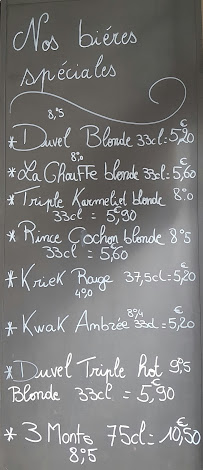 Nos bières
spéciales
8,°5
* Duvel Blonde 33cl = 5,20€
8,°
* La Chouffe blonde 33cl = 5,60€
* Triple Karmeliet blonde 8,°
33cl = 5,90
* Rince Cochon blonde 8°5
33cl = 5,60
* Kriek Rouge 37,5cl = 5,20€
4,°
8°4
* Kwak Ambrée 33cl = 5,20€
* Duvel Triple hot 9°5
Blonde 33cl = 5,90€
* 3 Monts 75cl = 10,50€
8°5